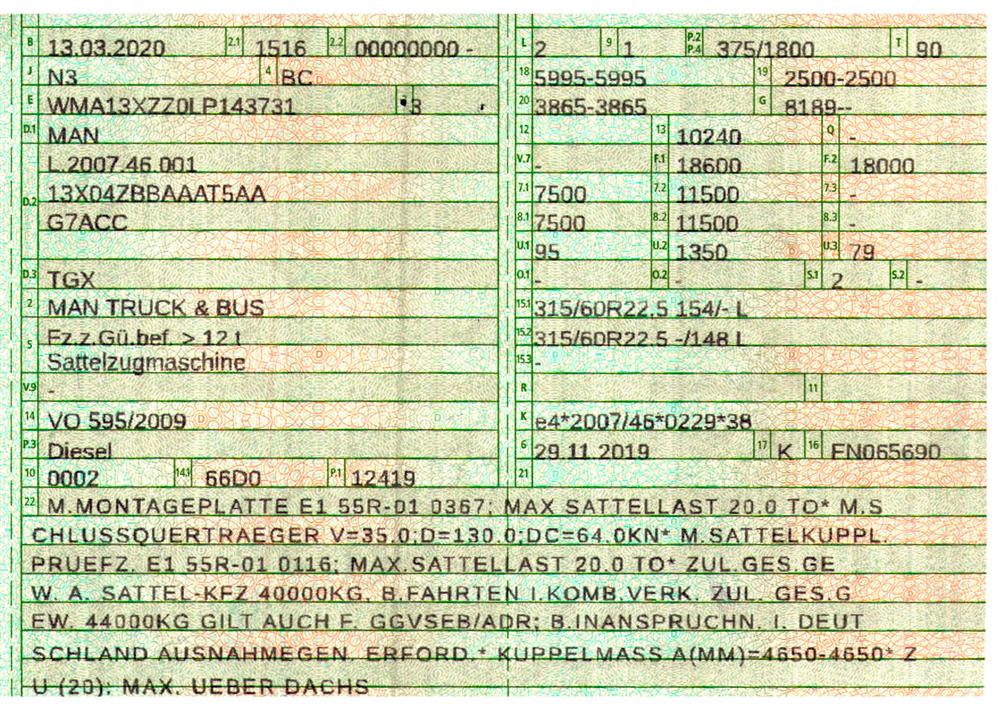 B 13.03.2020 2.1 1516 2.2 00000000 - L 2 9 1 P.2 P.4 375/1800 T 90
J N3 4 BC 18 5995-5995 19 2500-2500
E WMA13XZZ0LP143731 3 20 3865-3865 G 8189--
D.1 MAN 12 13 10240 Q -
L.2007.46.001 V.7 - F.1 18600 F.2 18000
D.2 13X04ZBBAAAT5AA 7.1 7500 7.2 11500 7.3 -
G7ACC 8.1 7500 8.2 11500 8.3 -
U.1 95 U.2 1350 U.3 79
D.3 TGX O.1 - O.2 - S.1 2 S.2 -
2 MAN TRUCK & BUS 15.1 315/60R22.5 154/- L
5 Fz.z.Gü.bef. > 12 t 15.2 315/60R22.5 -/148 L
Sattelzugmaschine 15.3 -
V.9 - R 11
14 VO 595/2009 K e4*2007/46*0229*38
P.3 Diesel 6 29.11.2019 17 K 16 FN065690
10 0002 14.1 66D0 P.1 12419 21
22 M.MONTAGEPLATTE E1 55R-01 0367; MAX SATTELLAST 20.0 TO* M.S
CHLUSSQUERTRAEGER V=35.0;D=130.0;DC=64.0KN* M.SATTELKUPPL.
PRUEFZ. E1 55R-01 0116; MAX.SATTELLAST 20.0 TO* ZUL.GES.GE
W. A. SATTEL-KFZ 40000KG, B.FAHRTEN I.KOMB.VERK. ZUL. GES.G
EW. 44000KG GILT AUCH F. GGVSEB/ADR; B.INANSPRUCHN. I. DEUT
SCHLAND AUSNAHMEGEN. ERFORD.* KUPPELMASS A(MM)=4650-4650* Z
U (20): MAX. UEBER DACHS